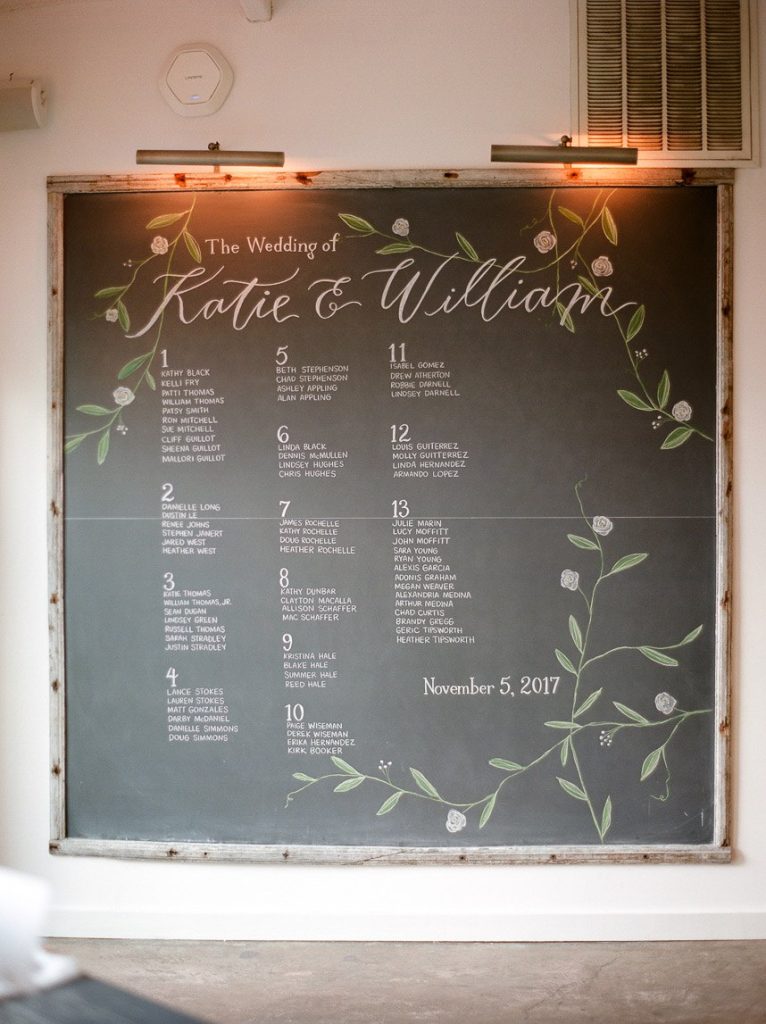 The Wedding of
Katie & William
1
KATHY BLACK
KELLI FRY
PATTI THOMAS
WILLIAM THOMAS
PATSY SMITH
RON MITCHELL
SUE MITCHELL
CLIFF GUILLOT
SHEENA GUILLOT
MALLORI GUILLOT
2
DANIELLE LONG
DUSTIN LE
RENEE JOHNS
STEPHEN JANERT
JARED WEST
HEATHER WEST
3
KATIE THOMAS
WILLIAM THOMAS, JR.
SEAN DUGAN
LINDSEY GREEN
RUSSELL THOMAS
SARAH STRADLEY
JUSTIN STRADLEY
4
LANCE STOKES
LAUREN STOKES
MATT GONZALES
DARBY McDANIEL
DANIELLE SIMMONS
DOUG SIMMONS
5
BETH STEPHENSON
CHAD STEPHENSON
ASHLEY APPLING
ALAN APPLING
6
LINDA BLACK
DENNIS McMULLEN
LINDSEY HUGHES
CHRIS HUGHES
7
JAMES ROCHELLE
KATHY ROCHELLE
DOUG ROCHELLE
HEATHER ROCHELLE
8
KATHY DUNBAR
CLAYTON MACALLA
ALLISON SCHAFFER
MAC SCHAFFER
9
KRISTINA HALE
BLAKE HALE
SUMMER HALE
REED HALE
10
PAIGE WISEMAN
DEREK WISEMAN
ERIKA HERNANDEZ
KIRK BOOKER
11
ISABEL GOMEZ
DREW ATHERTON
ROBBIE DARNELL
LINDSEY DARNELL
12
LOUIS GUITERREZ
MOLLY GUITTERREZ
LINDA HERNANDEZ
ARMANDO LOPEZ
13
JULIE MARIN
LUCY MOFFITT
JOHN MOFFITT
SARA YOUNG
RYAN YOUNG
ALEXIS GARCIA
ADONIS GRAHAM
MEGAN WEAVER
ALEXANDRIA MEDINA
ARTHUR MEDINA
CHAD CURTIS
BRANDY GREGG
GERIC TIPSWORTH
HEATHER TIPSWORTH
November 5, 2017